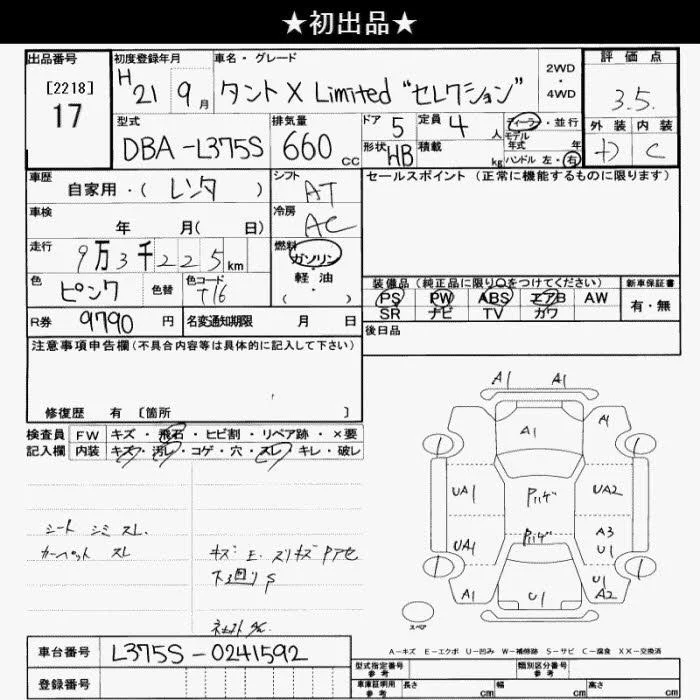 ★初出品★
出品番号
[2218]
17
初度登録年月
H21 9月
車名・グレード
タント X Limited "セレクション"
2WD・4WD
評価点
3.5
型式
DBA-L375S
排気量
660cc
ドア 5
定員 4人
形状 HB
積載 kg
ディーラー・並行
モデル年式 年
ハンドル 左・右
外装 内装
D C
車歴
自家用・(レンタ)
シフト
AT
車検
年 月(日)
冷房
AC
走行
9万3千225km
燃料
ガソリン・軽油・( )
色
ピンク
色替
色コード
T16
R券 9790円
名変通知期限 月 日
セールスポイント(正常に機能するものに限ります)
装備品(純正品に限り○をつけてください)
PS PW ABS エアB AW
SR ナビ TV カワ
新車保証書
有・無
後日品
注意事項申告欄(不具合内容等は具体的に記入して下さい)
修復歴 有〔箇所 〕
検査員記入欄
FW キズ・飛石・ヒビ割・リペア跡・×要
内装 キズ・汚レ・コゲ・穴・スレ・キレ・破レ
シート シミ スレ.
カーペット スレ
キズ E. スリキズ Pアセ
下回り S
A1 A1
A1
A1
UA1
Pハゲ
UA2
UA1
Pハゲ
A3
U1
A1
U1
U1
A2
スペア
A-キズ E-エクボ U-凹み W-補修跡 S-サビ C-腐食 XX-交換済
車台番号 L375S-0241592
登録番号
型式指定番号 参考
類別区分番号 参考
車庫証明用 参考
長さ cm 幅 cm 高さ cm